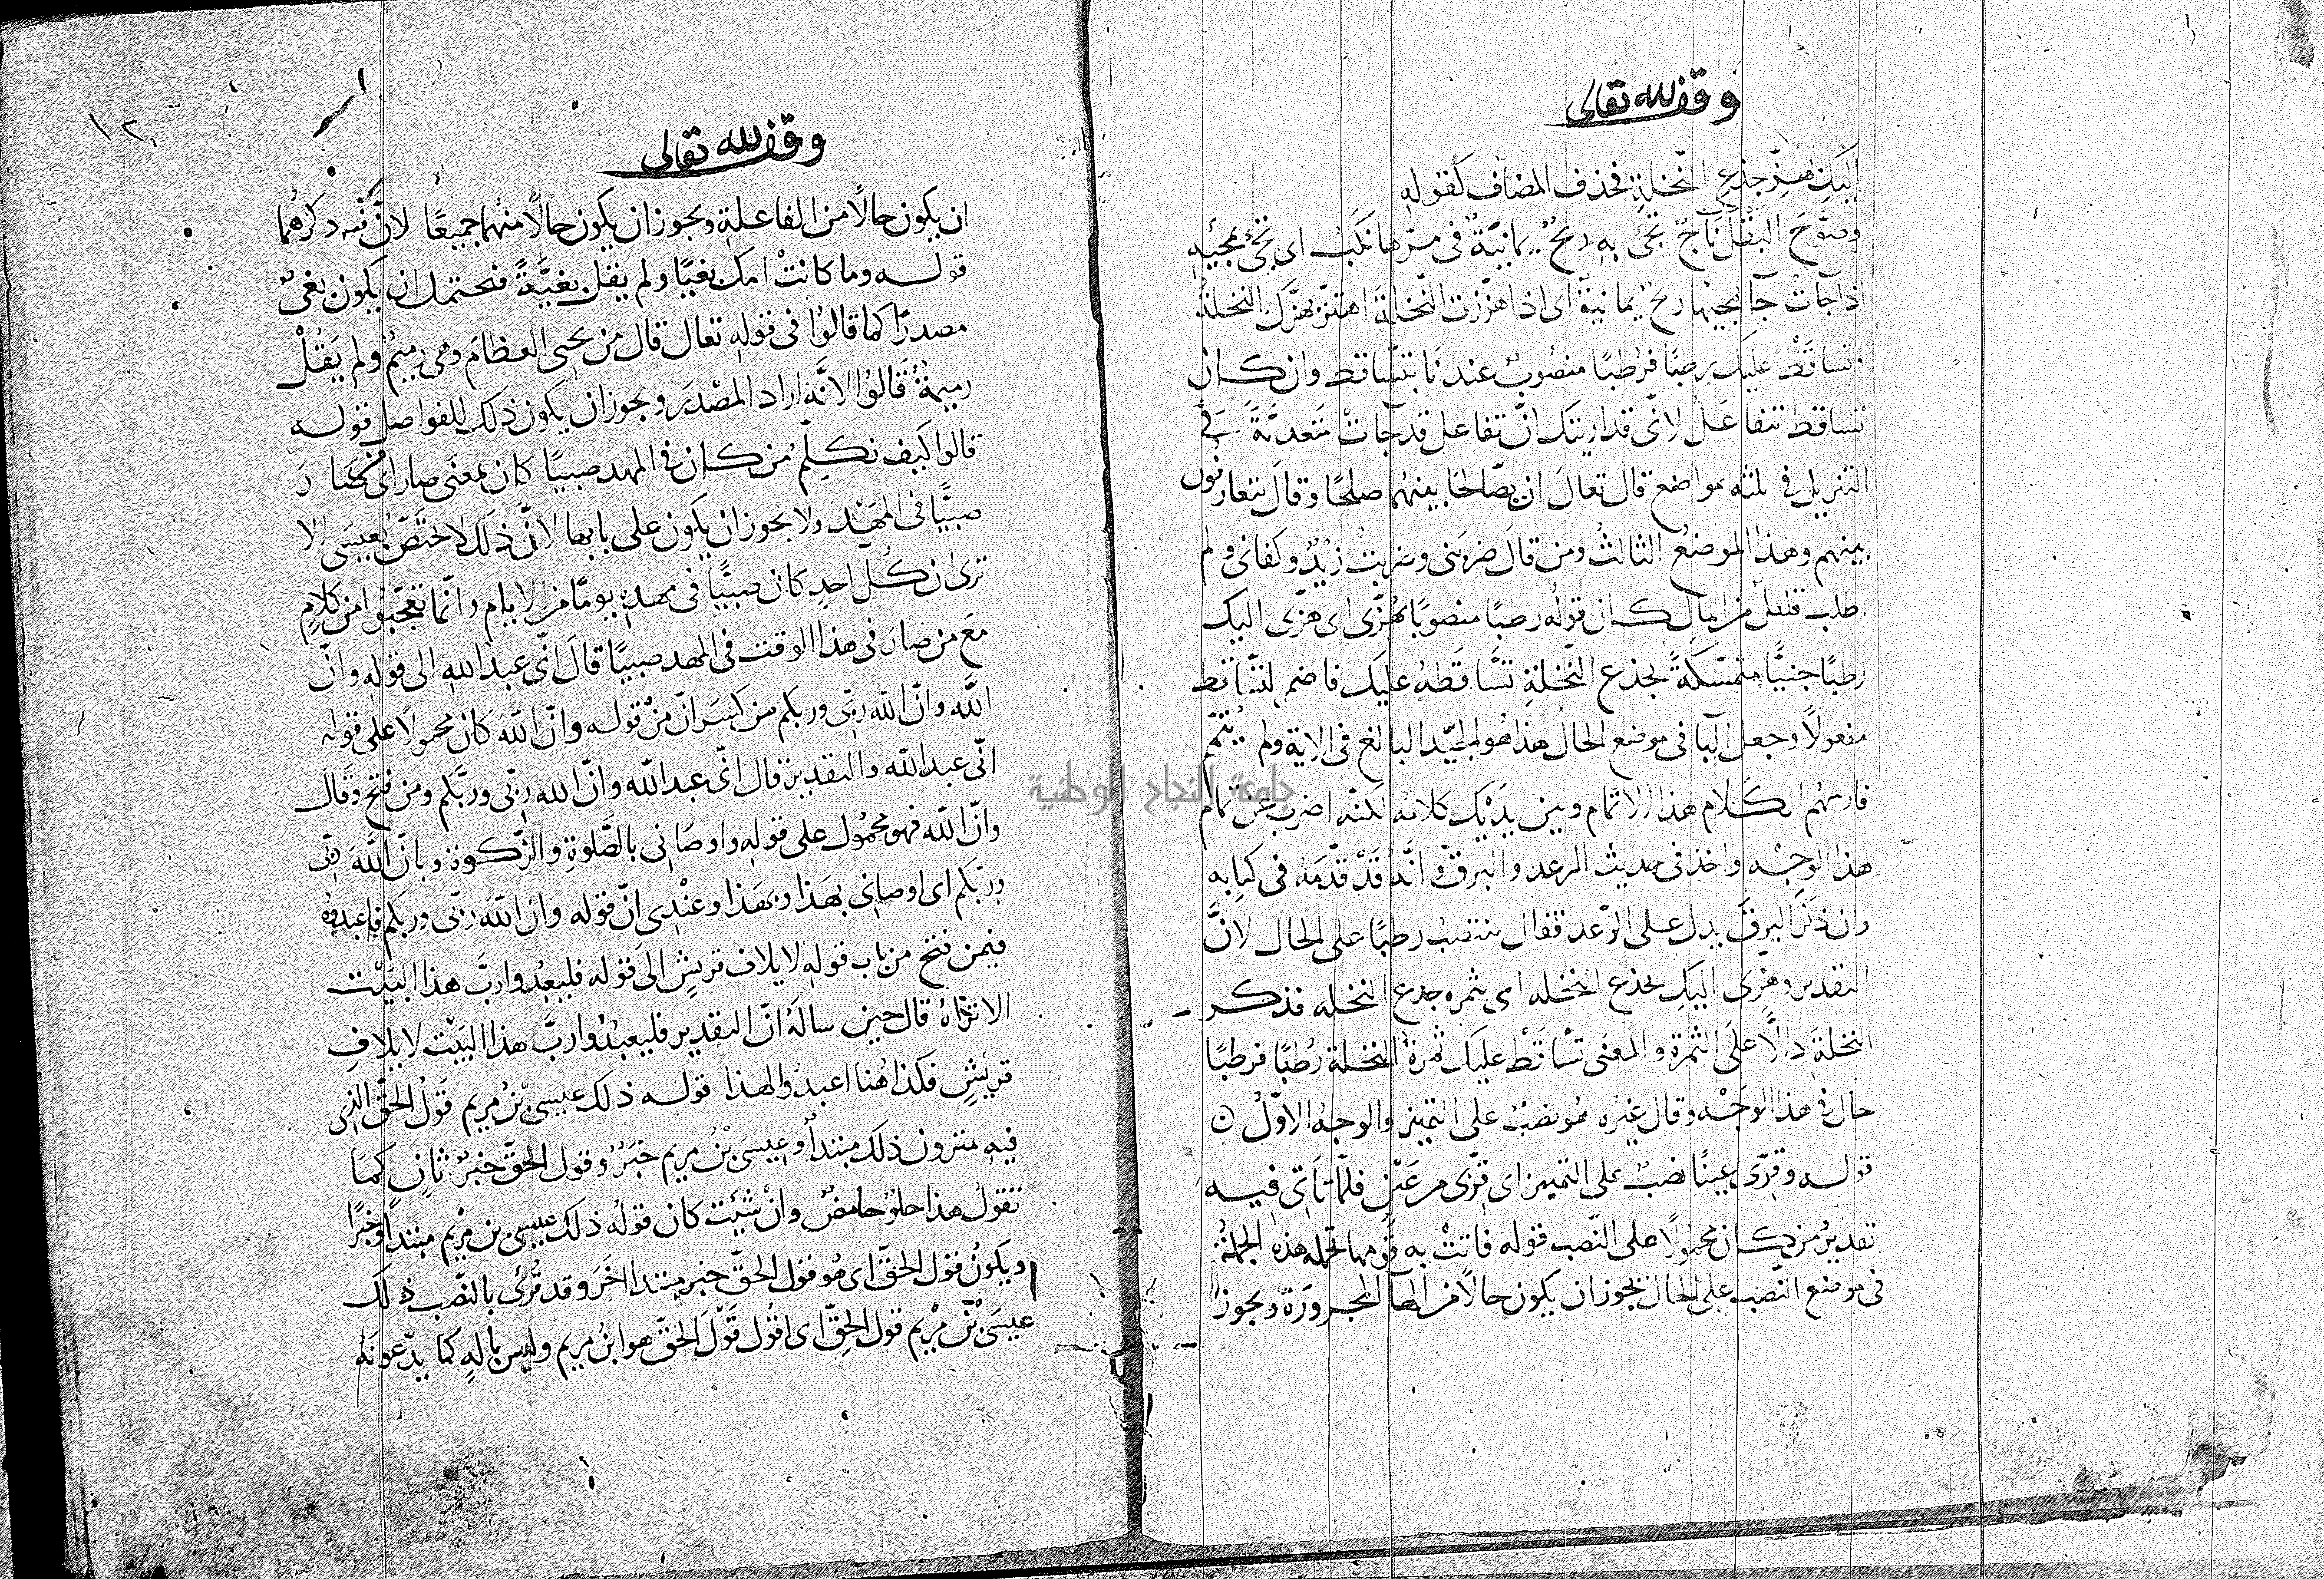 وقف لله تعالى
اليك هز جذع النخلة فحذف المضاف كقوله
وصوح البقل ناج تجئ به ريح يمانية في مرها نكب اى تجئ بمجيئه
اذا جات جا بمجيها ريح يمانية اى اذا هززت النخلة اهتز بهزك النخلة
وتساقط عليك رطبا فرطبا منصوب عندنا بتساقط وان كان
تساقط تتفاعل لانى قد اريتك ان تفاعل قد جات متعدية في
التنزيل في ثلثه مواضع قال تعالى ان يصالحا بينهما صلحا وقال يتعارفون
بينهم وهذا الموضع الثالث ومن قال ضربنى وضربت زيد وكفانى ولم
اطلب قليل من المال كان قوله رطبا منصوبا بهزى اى هزى اليك
رطبا جنيا متمسكة بجذع النخلة تساقطه عليك فاضمر لتساقط
مفعولا وجعل البا في موضع الحال هذا هو الجيد البالغ في الاية ولم يتمم
فارسهم الكلام هذا الاتمام وبين يديك كلامه لكنه اضرب عن تمام
هذا الوجه واخذ في حديث الرعد والبرق وانه قد قدمه في كتابه
وان ذكر البرق يدل على الرعد فقال ينتصب رطبا على الحال لان
التقدير وهزى اليك بجذع النخله اى بثمره جذع النخله فذكر
النخلة دالا على الثمرة والمعنى تساقط عليك ثمرة النخلة رطبا فرطبا
حال في هذا الوجه وقال غيره هو نصب على التمييز والوجه الاول
قوله وقرى عينا نصب على التمييز اى قرى من عين فلما تاتى فيه
تقدير من كان محمولا على النصب قوله فاتت به قومها تحمله هذه الجملة
في موضع النصب على الحال فيجوز ان يكون حالا من الها المجرورة ويجوز
١٢
وقف لله تعالى
ان يكون حالا من الفاعلة ويجوز ان يكون حالا منهما جميعا لان فيه ذكرهما
قوله وما كانت امك بغيا ولم يقل بغية فيحتمل ان يكون بغى
مصدرا كما قالوا فى قوله تعالى قال من يحيى العظام وهى رميم ولم يقل
رميمة قالوا لانه اراد المصدر ويجوز ان يكون ذلك للفواصل قوله
قالوا كيف نكلم من كان في المهد صبيا كان بمعنى صار اى
صبيا في المهد ولا يجوز ان يكون على بابها لان ذلك لا يختص بعيسى الا
ترى ان كل احد كان صبيا في مهده يوما من الايام وانما تعجبوا من كلام
مع من صار في هذا الوقت في المهد صبيا قال انى عبد الله الى قوله وان
الله وان الله ربى وربكم من كسر ان من قوله وان الله كان محمولا على قوله
انى عبد الله والتقدير قال انى عبد الله وان الله ربى وربكم ومن فتح وقال
وان الله فهو محمول على قوله واوصانى بالصلوة والزكوة وبان الله ربى
وربكم اى اوصانى بهذا وبهذا وعندى ان قوله وان الله ربى وربكم فاعبدوه
فيمن فتح من باب قوله لايلاف قريش الى قوله فليعبدوا رب هذا البيت
الا تراه قال حين ساله ان التقدير فليعبدوا رب هذا البيت لايلاف
قريش فكذا هنا اعبدوا لهذا قوله ذلك عيسى بن مريم قول الحق الذى
فيه يمترون ذلك مبتدا وعيسى بن مريم خبر وقول الحق خبر ثان كما
تقول هذا حلو حامض وان شئت كان قوله ذلك عيسى بن مريم مبتدا وخبرا
ويكون قول الحق اى هو قول الحق خبر مبتدا اخر وقد قرئ بالنصب ذلك
عيسى بن مريم قول الحق اى اقول قول الحق هو ابن مريم وليس باله كما يدعونه
جامعة النجاح الوطنية